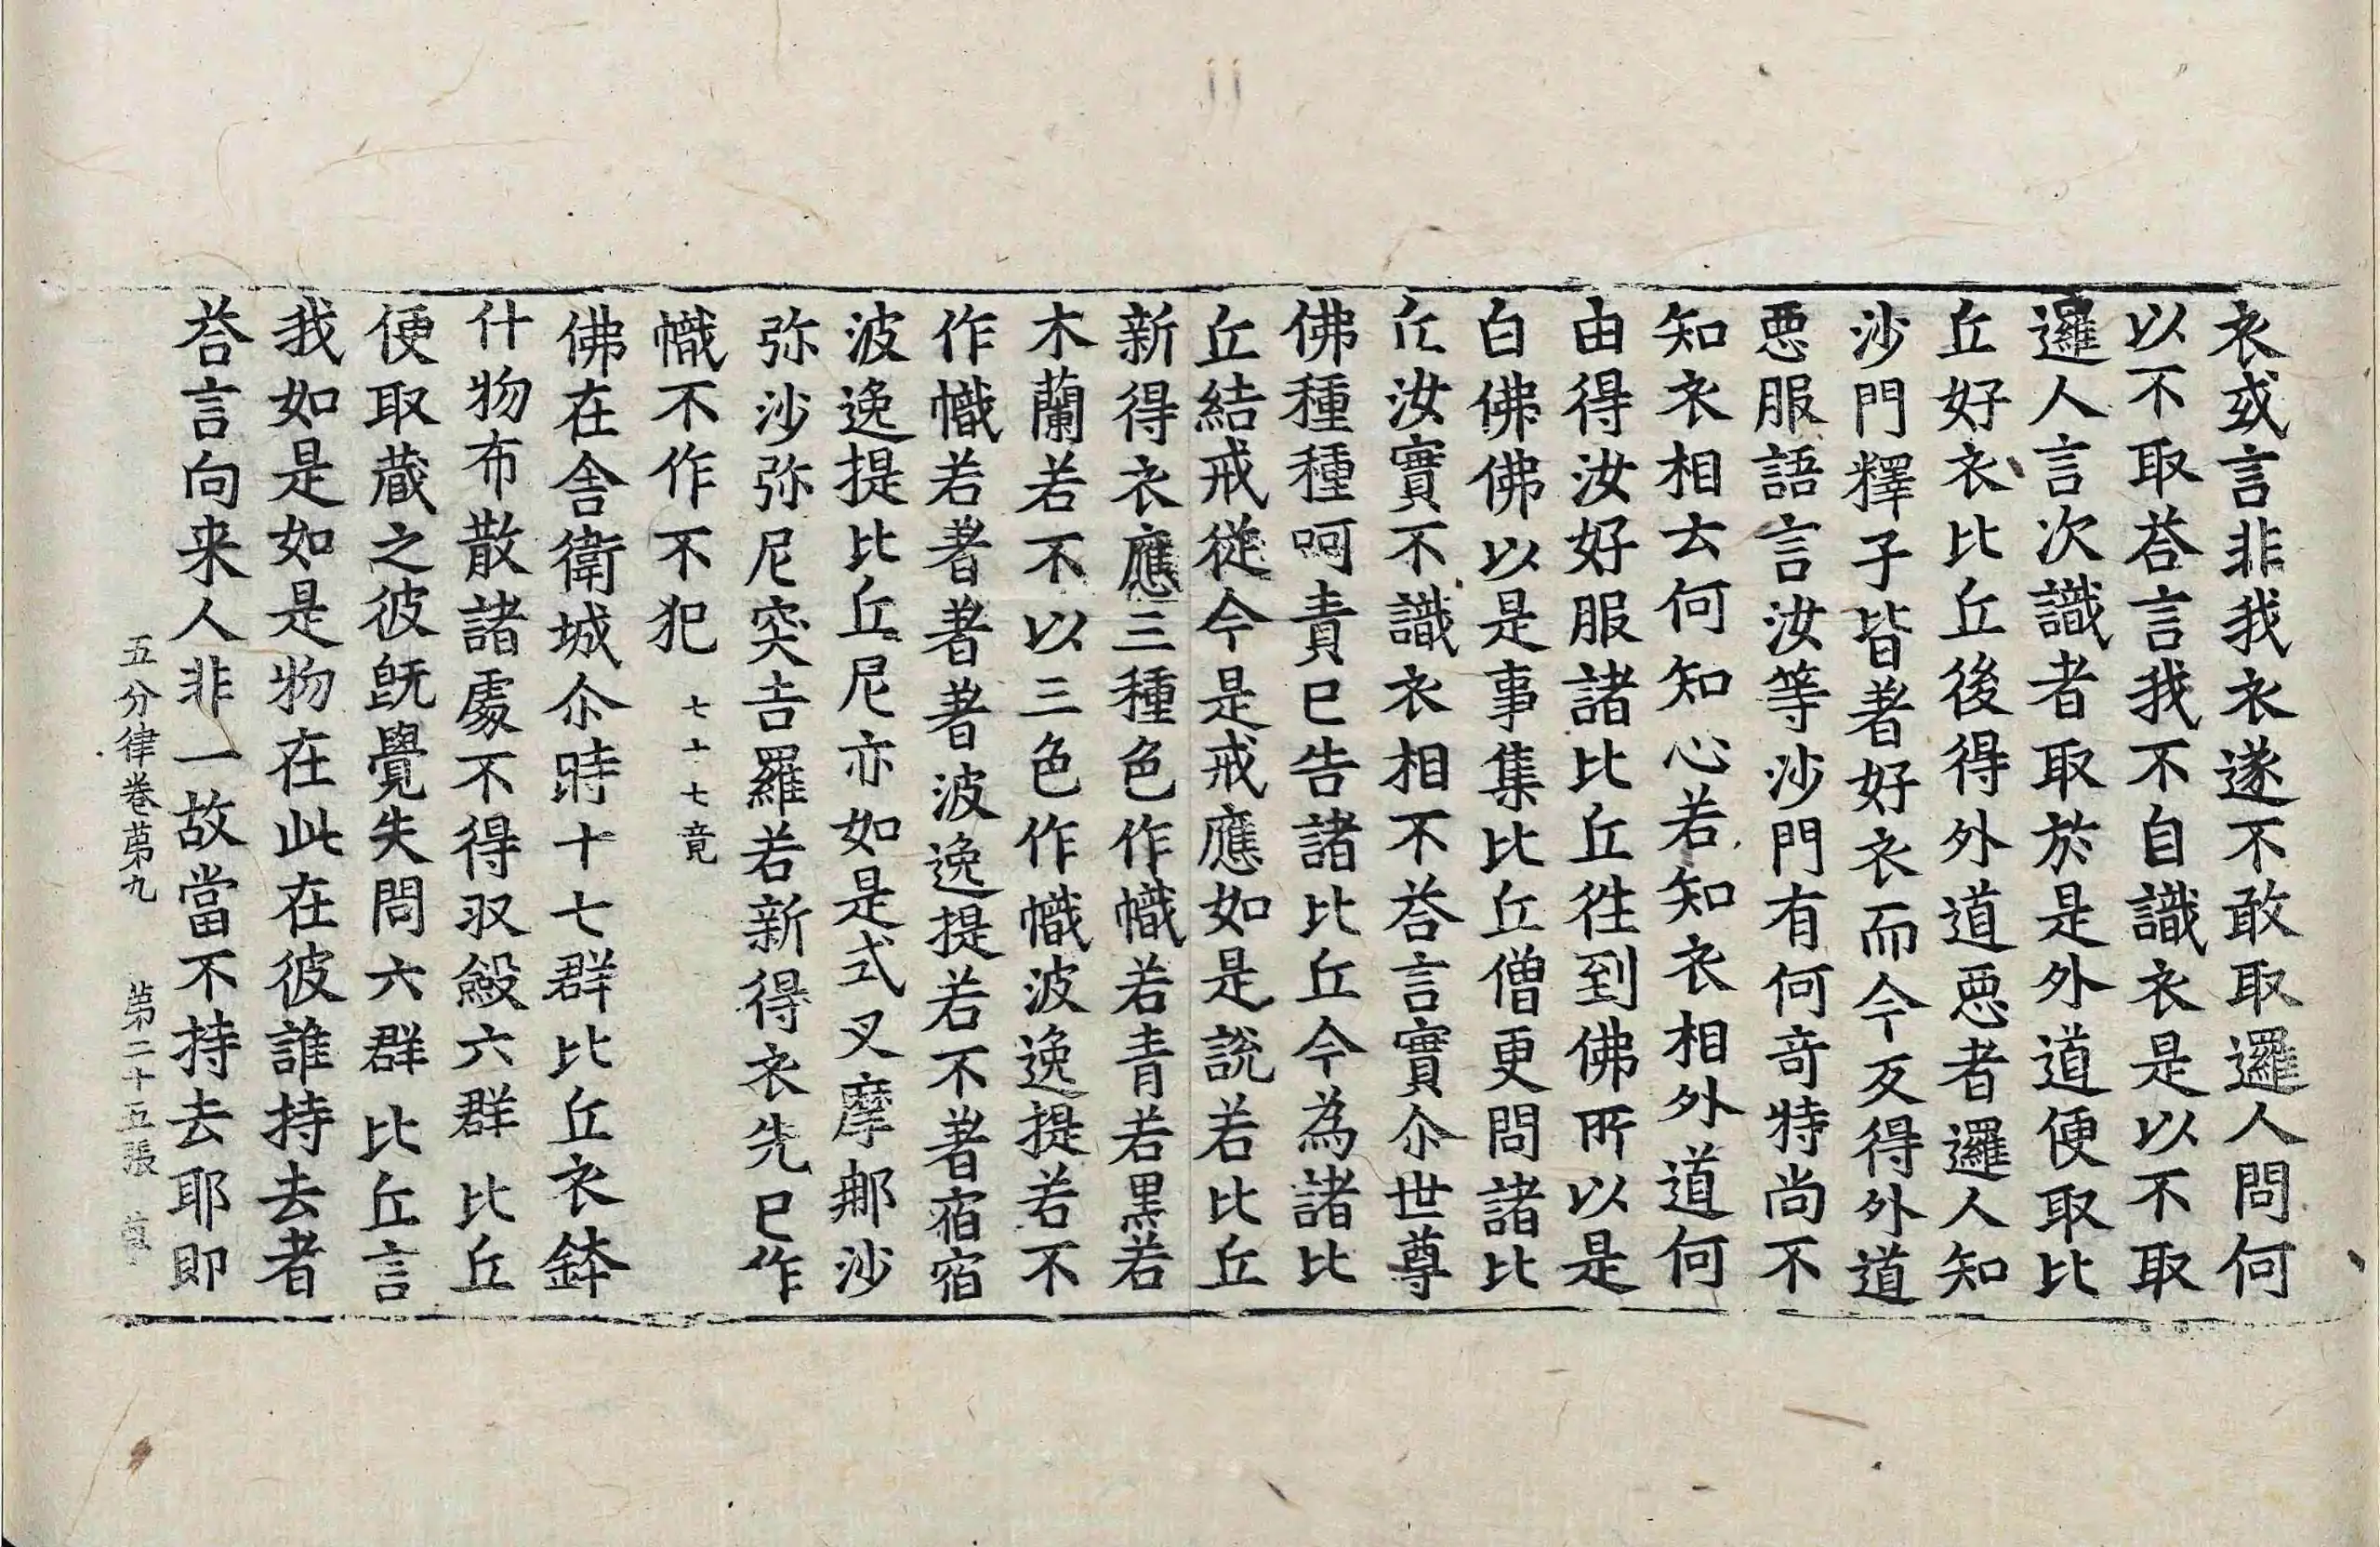 衣或言非我衣遂不敢取邏人問何
以不取荅言我不自識衣是以不取
邏人言次識者取於是外道便取比
丘好衣比丘後得外道惡者邏人知
沙門釋子皆著好衣而今反得外道
惡服語言汝等沙門有何奇特尚不
知衣相去何知心若知衣相外道何
由得汝好服諸比丘徃到佛所以是
白佛佛以是事集比丘僧更問諸比
丘汝實不識衣相不荅言實尒世尊
佛種種呵責巳告諸比丘今為諸比
丘結戒從今是戒應如是說若比丘
新得衣應三種色作幟若青若黑若
木蘭若不以三色作幟波逸提若不
作幟若著著著波逸提若不著宿宿
波逸提比丘尼亦如是式叉摩那沙
弥沙弥尼突吉羅若新得衣先巳作
幟不作不犯 七十七竟
佛在舍衛城尒時十七群比丘衣鉢
什物布散諸處不得収斂六群比丘
便取蔵之彼旣覺失問六群比丘言
我如是如是物在此在彼誰持去者
荅言向来人非一故當不持去耶即
五分律卷苐九 苐二十五張